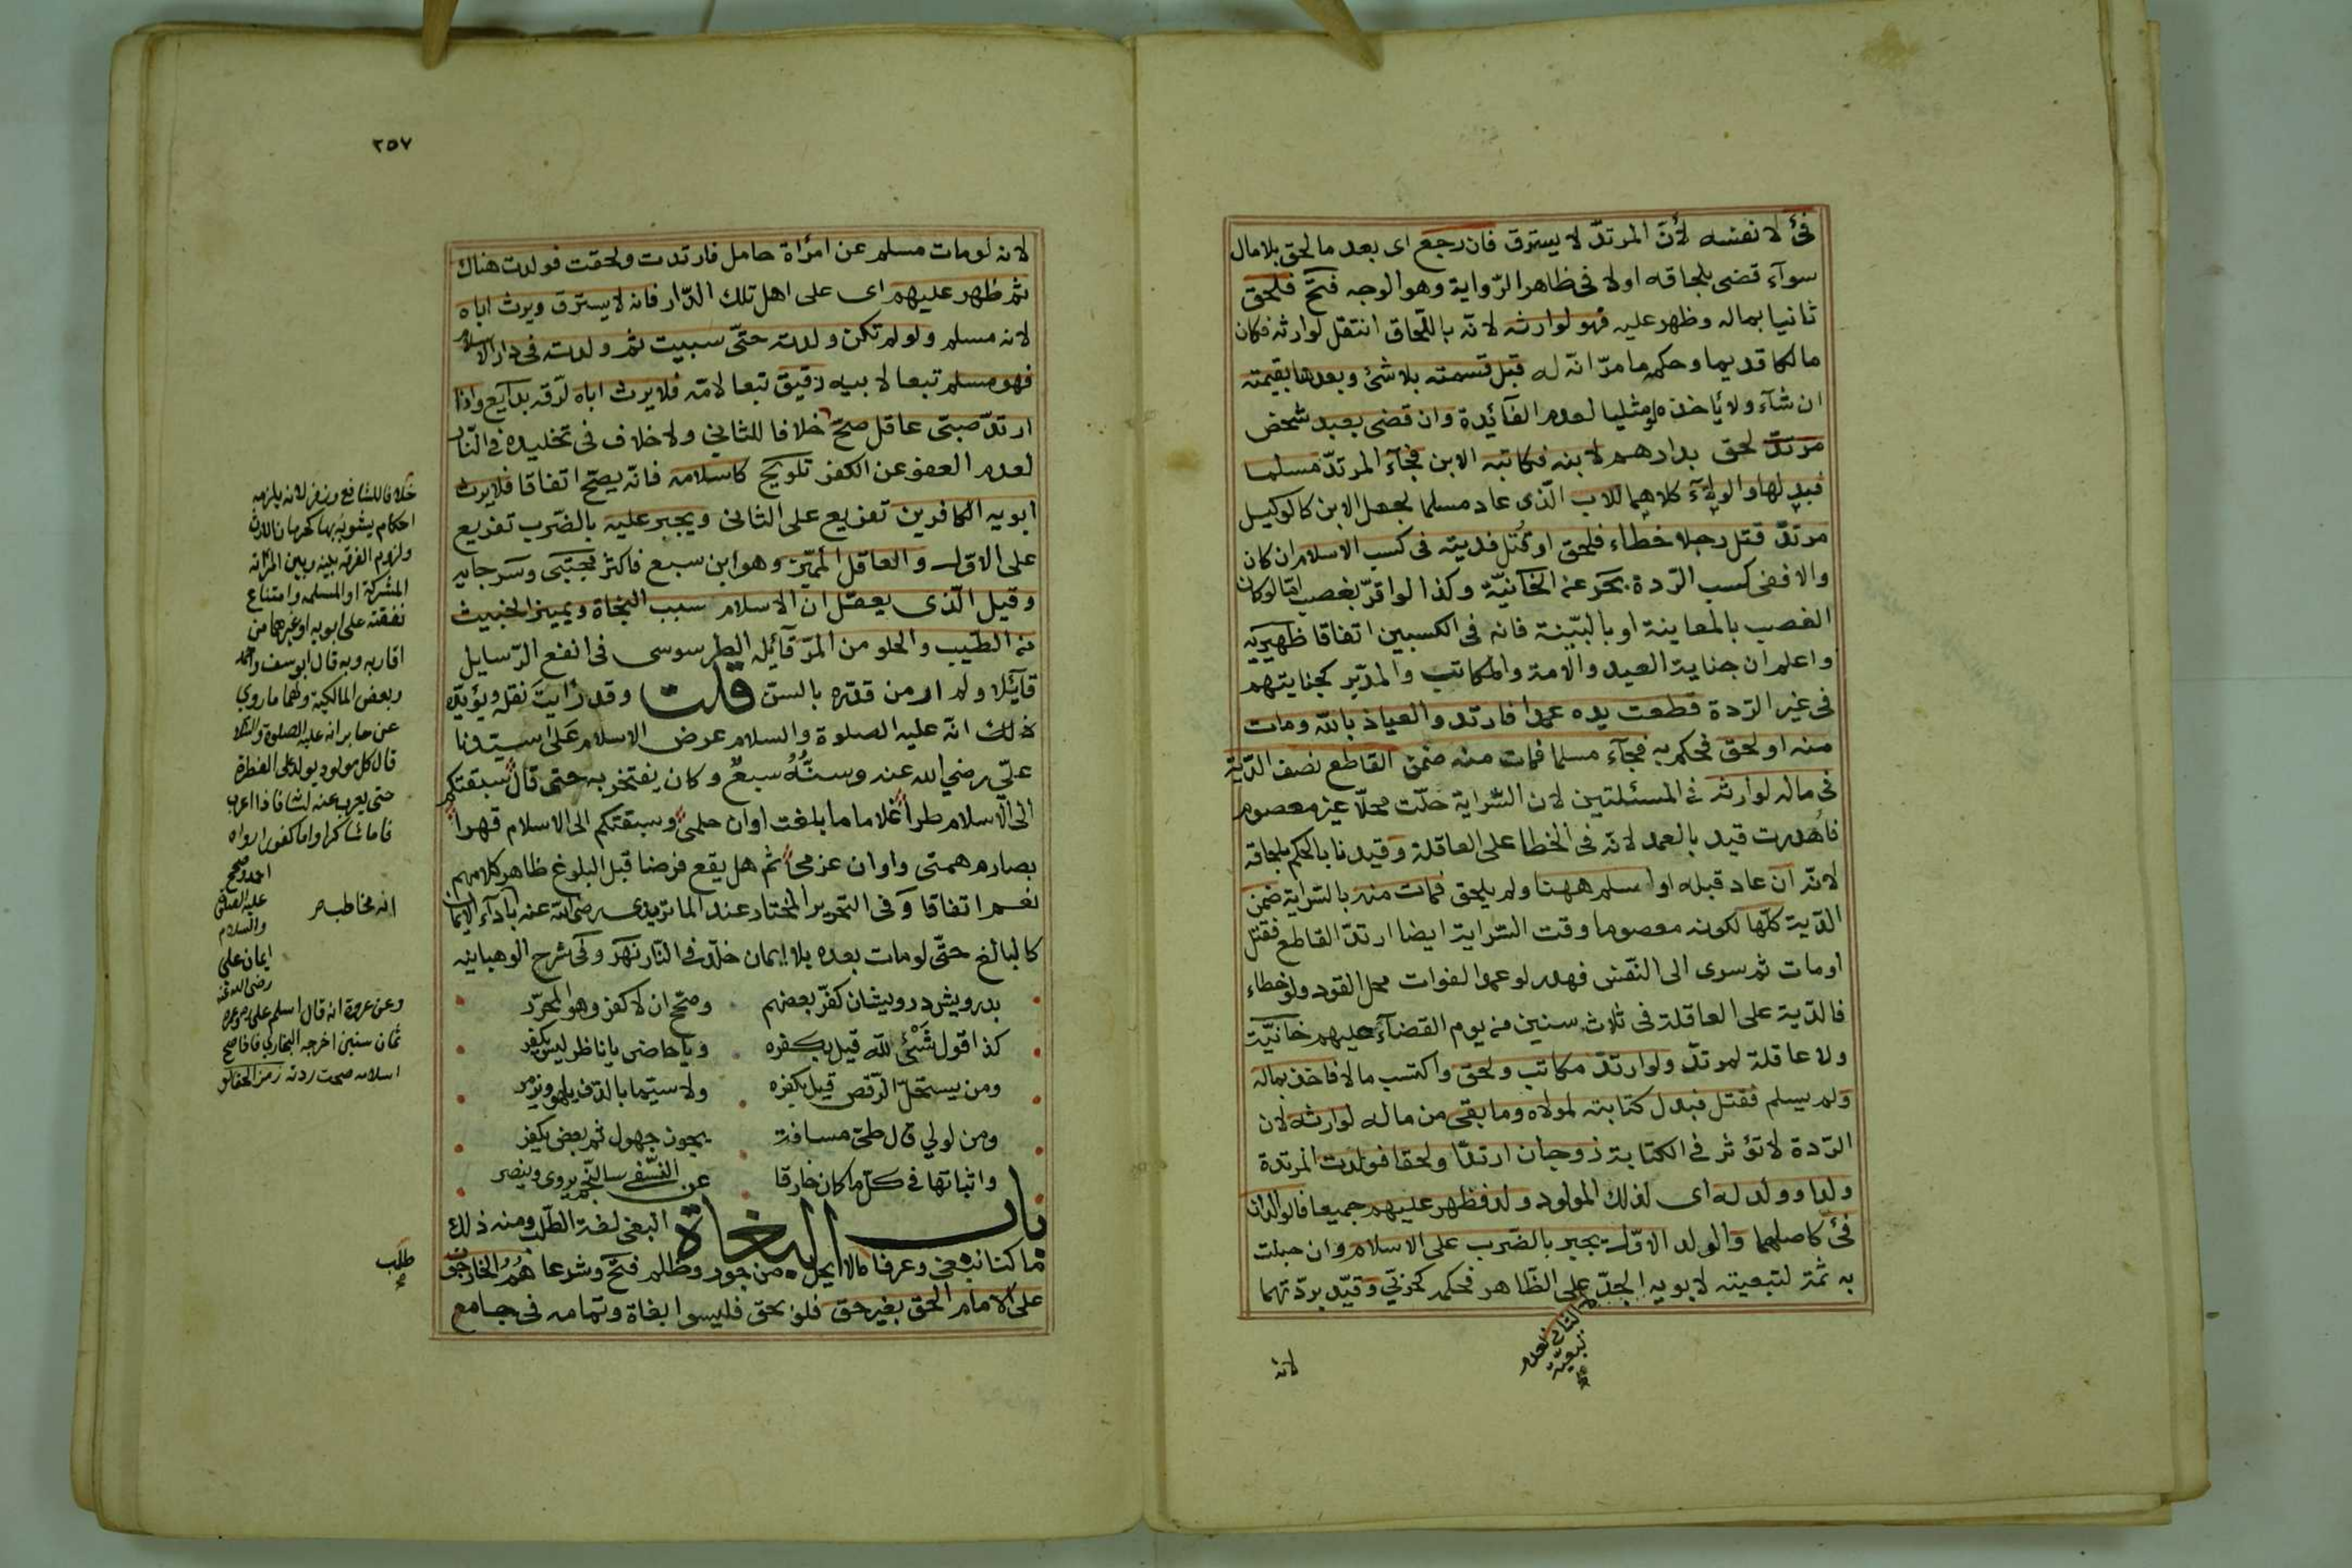 فئ لا نفسه لأنّ المرتدّ لا يسترق فان رجع اى بعد ما لحق بلا مال
سوآء قضى بلحاقه اولا فى ظاهر الرّواية وهو الوجه فتح فلحق
ثانيا بماله وظهر عليه فهو لوارثه لانّه باللّحاق انتقل لوارثه فكان
مالكا قديما وحكمه ما مرّ انّه له قبل قسمته بلا شئ وبعدها بقيمته
ان شآء ولا يأخذه لو مثليا لعدم الفآئدة وان قضى بعبد شخص
مرتدّ لحق بدارهم لابنه فكاتبه الابن فجآء المرتدّ مسلما
فبدلها والولآء كلاهما للاب الّذى عاد مسلما لجعل الابن كالوكيل
مرتدّ قتل رجلا خطاء فلحق او قُتل فديته فى كسب الاسلام ان كان
والا ففى كسب الرّدة بحر عن الخآنيّة وكذا لو اقرّ بغصب امّا لو كان
الغصب بالمعاينة او بالبيّنة فانه فى الكسبين اتفاقا ظهيريه
واعلم ان جناية العبد والامة والمكاتب والمدبّر كجنايتهم
فى غير الرّدة قطعت يده عمدا فارتد والعياذ بالله ومات
منه او لحق فحكم به فجآء مسلما فمات منه ضمن القاطع نصف الدّية
فى ماله لوارثه فى المسئلتين لان السّراية حلّت محلّا غير معصوم
فأُهدرت قيد بالعمد لانّه فى الخطا على العاقلة وقيدنا بالحكم بلحاقه
لانّه ان عاد قبله او اسلم ههنا ولم يلحق فمات منه بالسّراية ضمن
الدّية كلّها لكونه معصوما وقت السّراية ايضا ارتدّ القاطع فقتل
او مات ثم سرى الى النّفس فهدر لو عمدا لفوات محل القود ولو خطاء
فالدّية على العاقلة فى ثلاث سنين من يوم القضآء عليهم خانيّة
ولا عاقلة لمرتدّ ولو ارتدّ مكاتب ولحق واكتسب مالا فاخذ بماله
ولم يسلم فقتل فبدل كتابته لمولاه وما بقى من ماله لوارثه لان
الرّدة لا تؤثر فى الكتابة زوجان ارتدّا ولحقا فولدت المرتدة
ولدا وولد له اى لذلك المولود ولد فظهر عليهم جميعا فالولدان
فئ كاصلهما والولد الاوّل يجبر بالضّرب على الاسلام وان حبلت
به ثمّة لتبعيته لابويه الجدّ على الظّاهر فحكمه كحربىّ وقيّد بردّتهما
لا الثانى لعدم
تبعيّة
لانه
٢٥٧
لانه لو مات مسلم عن امرأة حامل فارتدت ولحقت فولدت هناك
ثم ظهر عليهم اى على اهل تلك الدّار فانه لا يسترق ويرث اباه
لانه مسلم ولو لم تكن ولدته حتّى سبيت ثم ولدته فى دار الاسلام
فهو مسلم تبعا لابيه رقيق تبعا لامّه فلا يرث اباه لرّقه بدآيع واذا
ارتدّ صبىّ عاقل صحّ خلافا للثانى ولا خلاف فى تخليده فى النّار
لعدم العفو عن الكفر تلويح كاسلامه فانّه يصحّ اتفاقا فلا يرث
ابويه الكافرين تفريع على الثانى ويجبر عليه بالضّرب تفريع
على الاوّل والعاقل المميّز وهو ابن سبع فاكثر مجتبى وسرجايه
وقيل الّذى يعقل ان الاسلام سبب النجاة ويميز الخبيث
من الطّيب والحلو من المرّ قآئله الطرسوسى فى انفع الرّسايل
قآئلا ولم ار من قدّره بالسنّ قلت وقد رأيت نقله ويؤيّده
ذلك انّه عليه الصلوة والسلام عرض الاسلام على سيّدنا
علىّ رضي الله عنه وسنُّهُ سبعٌ وكان يفتخر به حتى قال سبقتكم
الى الاسلام طراً غلاما ما بلغت اوان حلمى وسبقتكم الى الاسلام قهرا
بصارم همتى واوان عزمى ثم هل يقع فرضا قبل البلوغ ظاهر كلامهم
نعم اتفاقا وفى التحرير المختار عند الماتريدى رضى الله عنه بادآء الايمان
كالبالغ حتّى لو مات بعده بلا ايمان خلّد فى النّار نهر وفى شرح الوهبانيه
بدرويش درويشان كفرّ بعضهم وصحّح ان لا كفر وهو المحرّر
كذا قول شَىْئ لله قيل بكفره ويا حاضر يا ناظر ليس يكفر
ومن يستحلّ الرّقص قيل بكفره ولا سيّما بالدّف يلهو ويزمر
ومن لولي قال طىّ مسافة يجوز جهول ثم بعض يكفر
واثباتها فى كلّ ما كان خارقا عن النّسفى سالنّجم يروى وينصر
باب البغاة البغى لغة الطّلب ومنه ذلك
ما كنا نبغى وعرفا طلب ما لا يحلّ من جور وظلم فتح وشرعا هُم الخارجون
على الامام الحق بغير حق فلو بحق فليسوا بغاة وتمامه فى جامع
خلافا للشافع وزفر لانه يلزمه
احكام يشوبه بها كحرمان الارث
ولزوم الفرقة بينه وبين امرأته
المشركة او المسلمه وامتناع
نفقته على ابويه او غيرهما من
اقاربه وبه قال ابو يوسف واحمد
وبعض المالكية ولهما ما روي
عن جابر انه عليه الصلوة والسلام
قال كل مولود يولد على الفطرة
حتى يعرب عنه لسانه فاذا اعرب
فاما شاكرا واما كفورا رواه
احمد وصحح
عليه الصلوة
والسلام
انه مخاطب
ايمان على
رضى الله عنه
وعن عروة انه قال اسلم على وعمره
ثمان سنين اخرجه البخاري فاذا صح
اسلامه صحت ردته رمز الحقائق
طلب